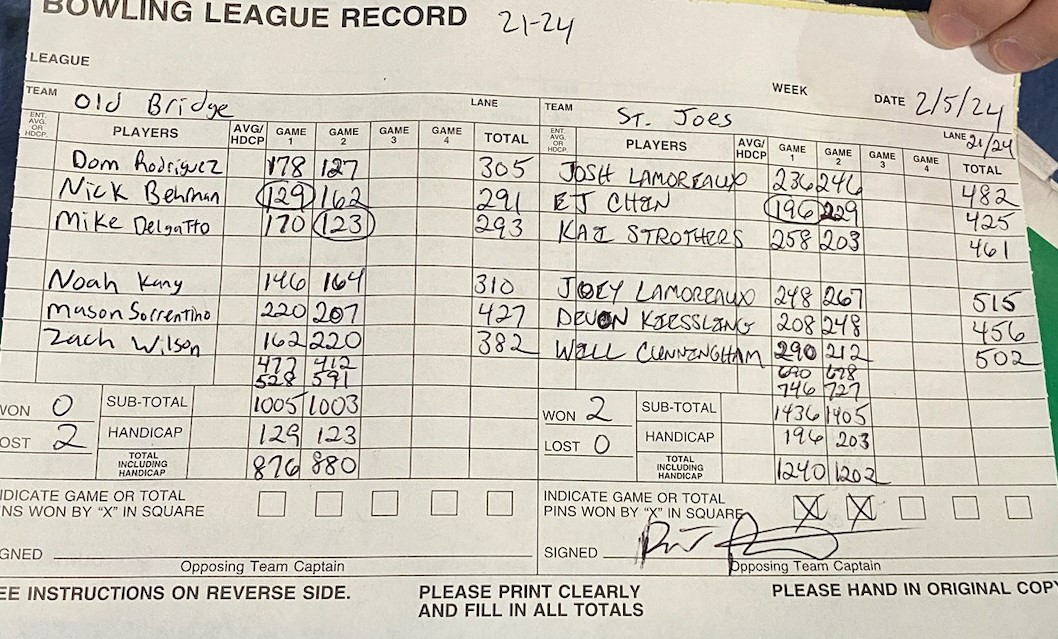 BOWLING LEAGUE RECORD 21-24
LEAGUE
WEEK DATE 2/5/24
TEAM Old Bridge LANE
ENT. AVG. OR HDCP. PLAYERS AVG/HDCP GAME 1 GAME 2 GAME 3 GAME 4 TOTAL
Dom Rodriguez 178 127 305
Nick Behman 129 162 291
Mike Delgatto 170 123 293
Noah Kany 146 164 310
Mason Sorrentino 220 207 427
Zach Wilson 162 220 382
477 412
528 591
WON 0 SUB-TOTAL 1005 1003
LOST 2 HANDICAP 129 123
TOTAL INCLUDING HANDICAP 876 880
INDICATE GAME OR TOTAL
PINS WON BY "X" IN SQUARE
SIGNED
Opposing Team Captain
TEAM St. Joes LANE 21/24
ENT. AVG. OR HDCP. PLAYERS AVG/HDCP GAME 1 GAME 2 GAME 3 GAME 4 TOTAL
JOSH LAMOREAUX 236 246 482
EJ CHIN 196 229 425
KAI STROTHERS 258 203 461
JOEY LAMOREAUX 248 267 515
DEVON KIESSLING 208 248 456
WILL CUNNINGHAM 290 212 502
690 678
746 727
WON 2 SUB-TOTAL 1436 1405
LOST 0 HANDICAP 196 203
TOTAL INCLUDING HANDICAP 1240 1202
INDICATE GAME OR TOTAL
PINS WON BY "X" IN SQUARE X X
SIGNED
Opposing Team Captain
SEE INSTRUCTIONS ON REVERSE SIDE. PLEASE PRINT CLEARLY AND FILL IN ALL TOTALS PLEASE HAND IN ORIGINAL COPY